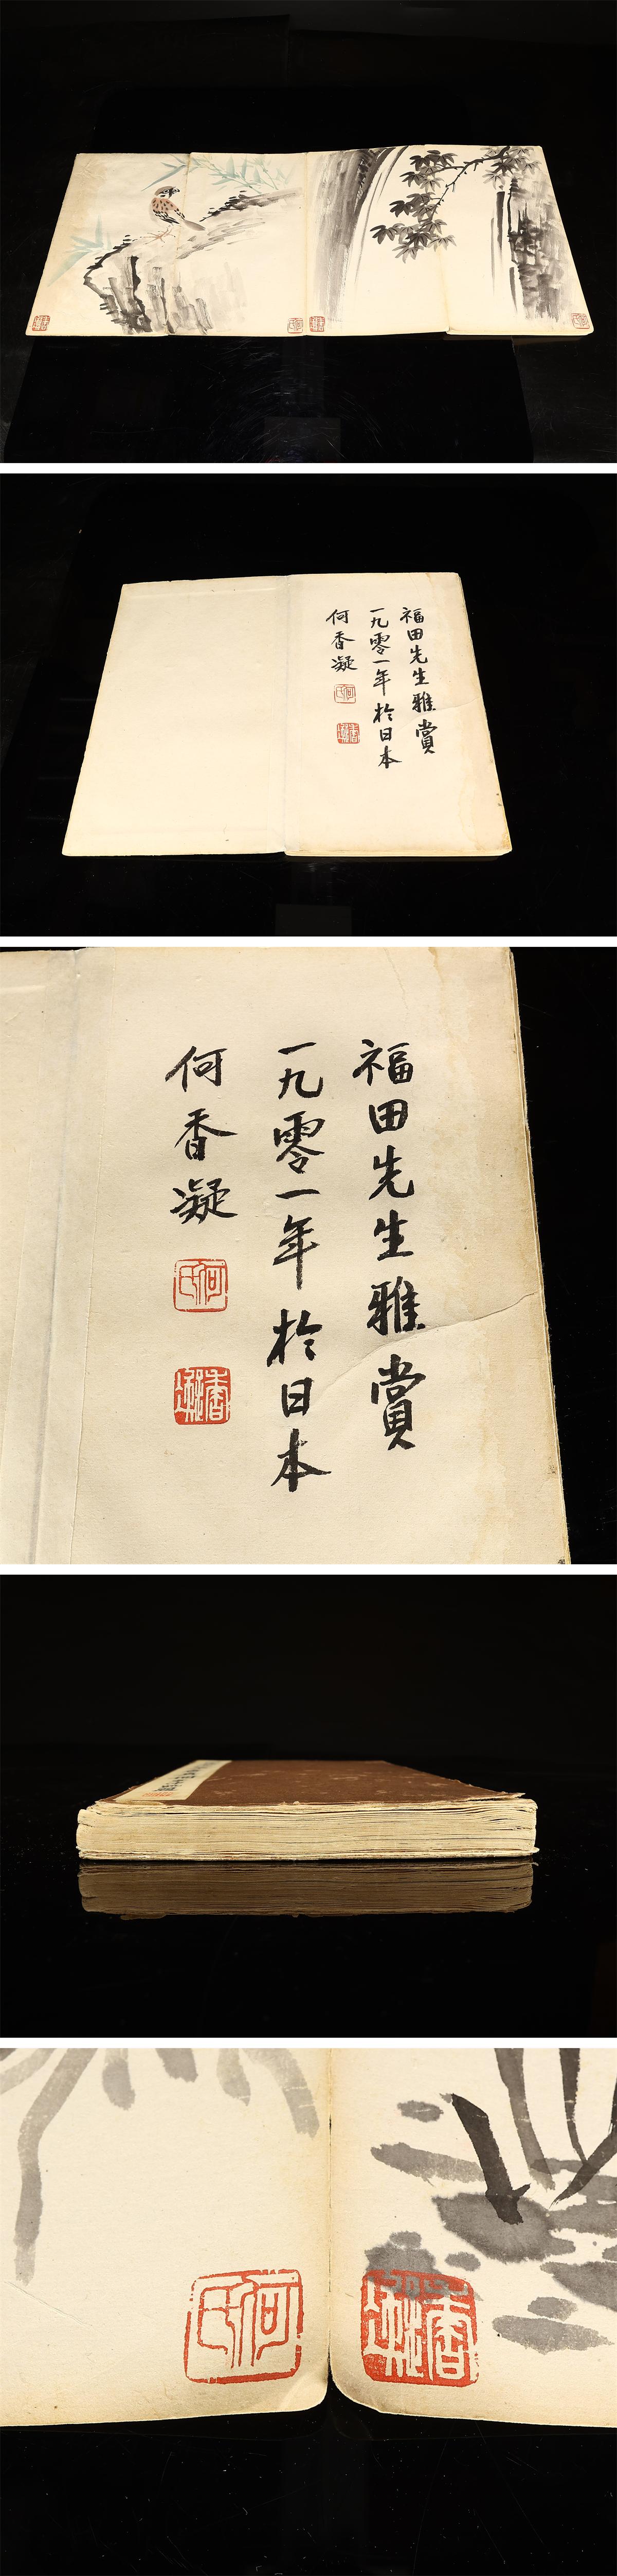 福田先生雅賞
一九零一年於日本
何香凝
何氏
香凝
福田先生雅賞
一九零一年於日本
何香凝
何氏
香凝
何氏
香凝